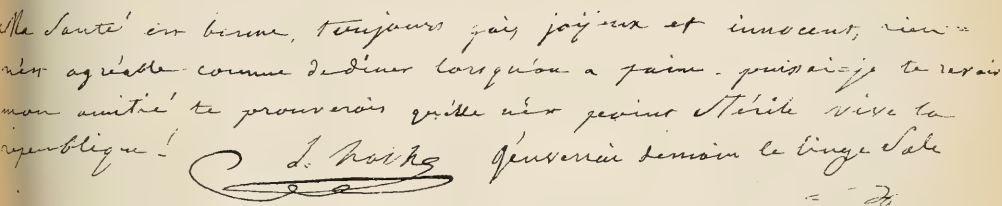 Ma Santé est bonne, toujours gai, joyeux et innocent, rien =
n'est agréable comme de diner lorsqu'on a faim. puissai-je te revoir
mon amitié te prouverois qu'elle n'est point Stérile vive la
republique!
j'enverrai demain le linge Sale